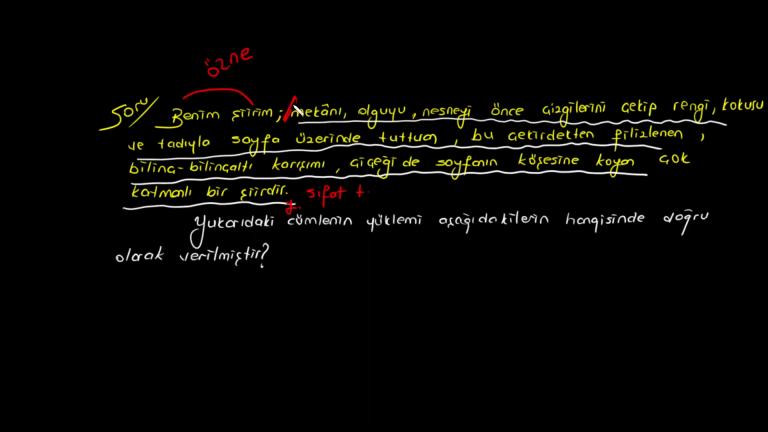 özne
Soru/ Benim şiirim; mekânı, olguyu, nesneyi önce çizgilerini çekip rengi, kokusu
ve tadıyla sayfa üzerinde tutturan, bu çekirdekten filizlenen,
bilinç-bilinçaltı karışımı, çiçeği de sayfanın köşesine koyan çok
katmanlı bir şiirdir. y. sıfat t.
Yukarıdaki cümlenin yüklemi aşağıdakilerin hangisinde doğru
olarak verilmiştir?